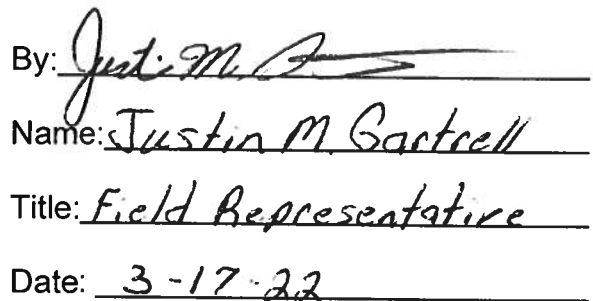 By: Justin M.
Name: Justin M. Gartrell
Title: Field Representative
Date: 3-17-22